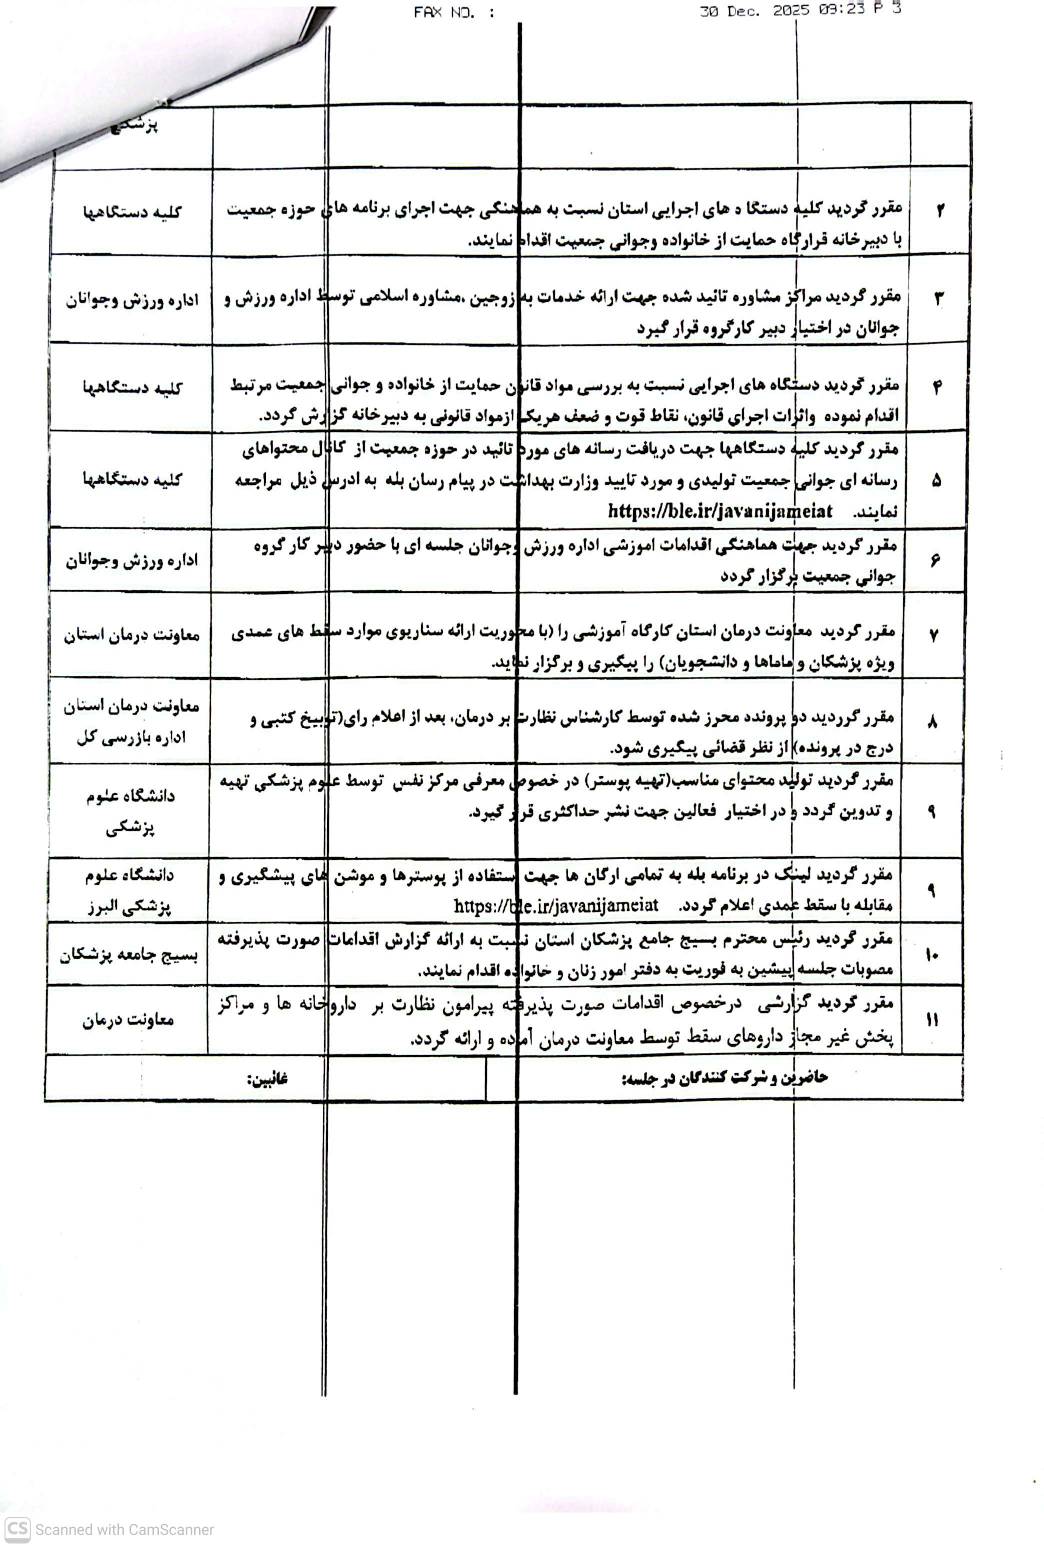 FAX NO. :
30 Dec. 2025 09:23 P 3
پزشکی
۲
مقرر گردید کلیه دستگا ه های اجرایی استان نسبت به هماهنگی جهت اجرای برنامه های حوزه جمعیت
با دبیرخانه قرارگاه حمایت از خانواده وجوانی جمعیت اقدام نمایند.
کلیه دستگاهها
۳
مقرر گردید مراکز مشاوره تائید شده جهت ارائه خدمات به زوجین ،مشاوره اسلامی توسط اداره ورزش و
جوانان در اختیار دبیر کارگروه قرار گیرد
اداره ورزش وجوانان
۴
مقرر گردید دستگاه های اجرایی نسبت به بررسی مواد قانون حمایت از خانواده و جوانی جمعیت مرتبط
اقدام نموده واثرات اجرای قانون، نقاط قوت و ضعف هریک ازمواد قانونی به دبیرخانه گزارش گردد.
کلیه دستگاهها
۵
مقرر گردید کلیه دستگاهها جهت دریافت رسانه های مورد تائید در حوزه جمعیت از کانال محتواهای
رسانه ای جوانی جمعیت تولیدی و مورد تایید وزارت بهداشت در پیام رسان بله به ادرس ذیل مراجعه
نمایند. https://ble.ir/javanijameiat
کلیه دستگاهها
۶
مقرر گردید جهت هماهنگی اقدامات اموزشی اداره ورزش وجوانان جلسه ای با حضور دبیر کار گروه
جوانی جمعیت برگزار گردد
اداره ورزش وجوانان
۷
مقرر گردید معاونت درمان استان کارگاه آموزشی را (با محوریت ارائه سناریوی موارد سقط های عمدی
ویژه پزشکان و ماماها و دانشجویان) را پیگیری و برگزار نماید.
معاونت درمان استان
۸
مقرر گرردید دو پرونده محرز شده توسط کارشناس نظارت بر درمان، بعد از اعلام رای(توبیخ کتبی و
درج در پرونده) از نظر قضائی پیگیری شود.
معاونت درمان استان
اداره بازرسی کل
۹
مقرر گردید تولید محتوای مناسب(تهیه پوستر) در خصوص معرفی مرکز نفس توسط علوم پزشکی تهیه
و تدوین گردد و در اختیار فعالین جهت نشر حداکثری قرار گیرد.
دانشگاه علوم
پزشکی
۹
مقرر گردید لینک در برنامه بله به تمامی ارگان ها جهت استفاده از پوسترها و موشن های پیشگیری و
مقابله با سقط عمدی اعلام گردد. https://ble.ir/javanijameiat
دانشگاه علوم
پزشکی البرز
۱۰
مقرر گردید رئیس محترم بسیج جامع پزشکان استان نسبت به ارائه گزارش اقدامات صورت پذیرفته
مصوبات جلسه پیشین به فوریت به دفتر امور زنان و خانواده اقدام نمایند.
بسیج جامعه پزشکان
۱۱
مقرر گردید گزارشی درخصوص اقدامات صورت پذیرفته پیرامون نظارت بر داروخانه ها و مراکز
پخش غیر مجاز داروهای سقط توسط معاونت درمان آماده و ارائه گردد.
معاونت درمان
حاضرین و شرکت کنندگان در جلسه:
غائبین:
CS Scanned with CamScanner